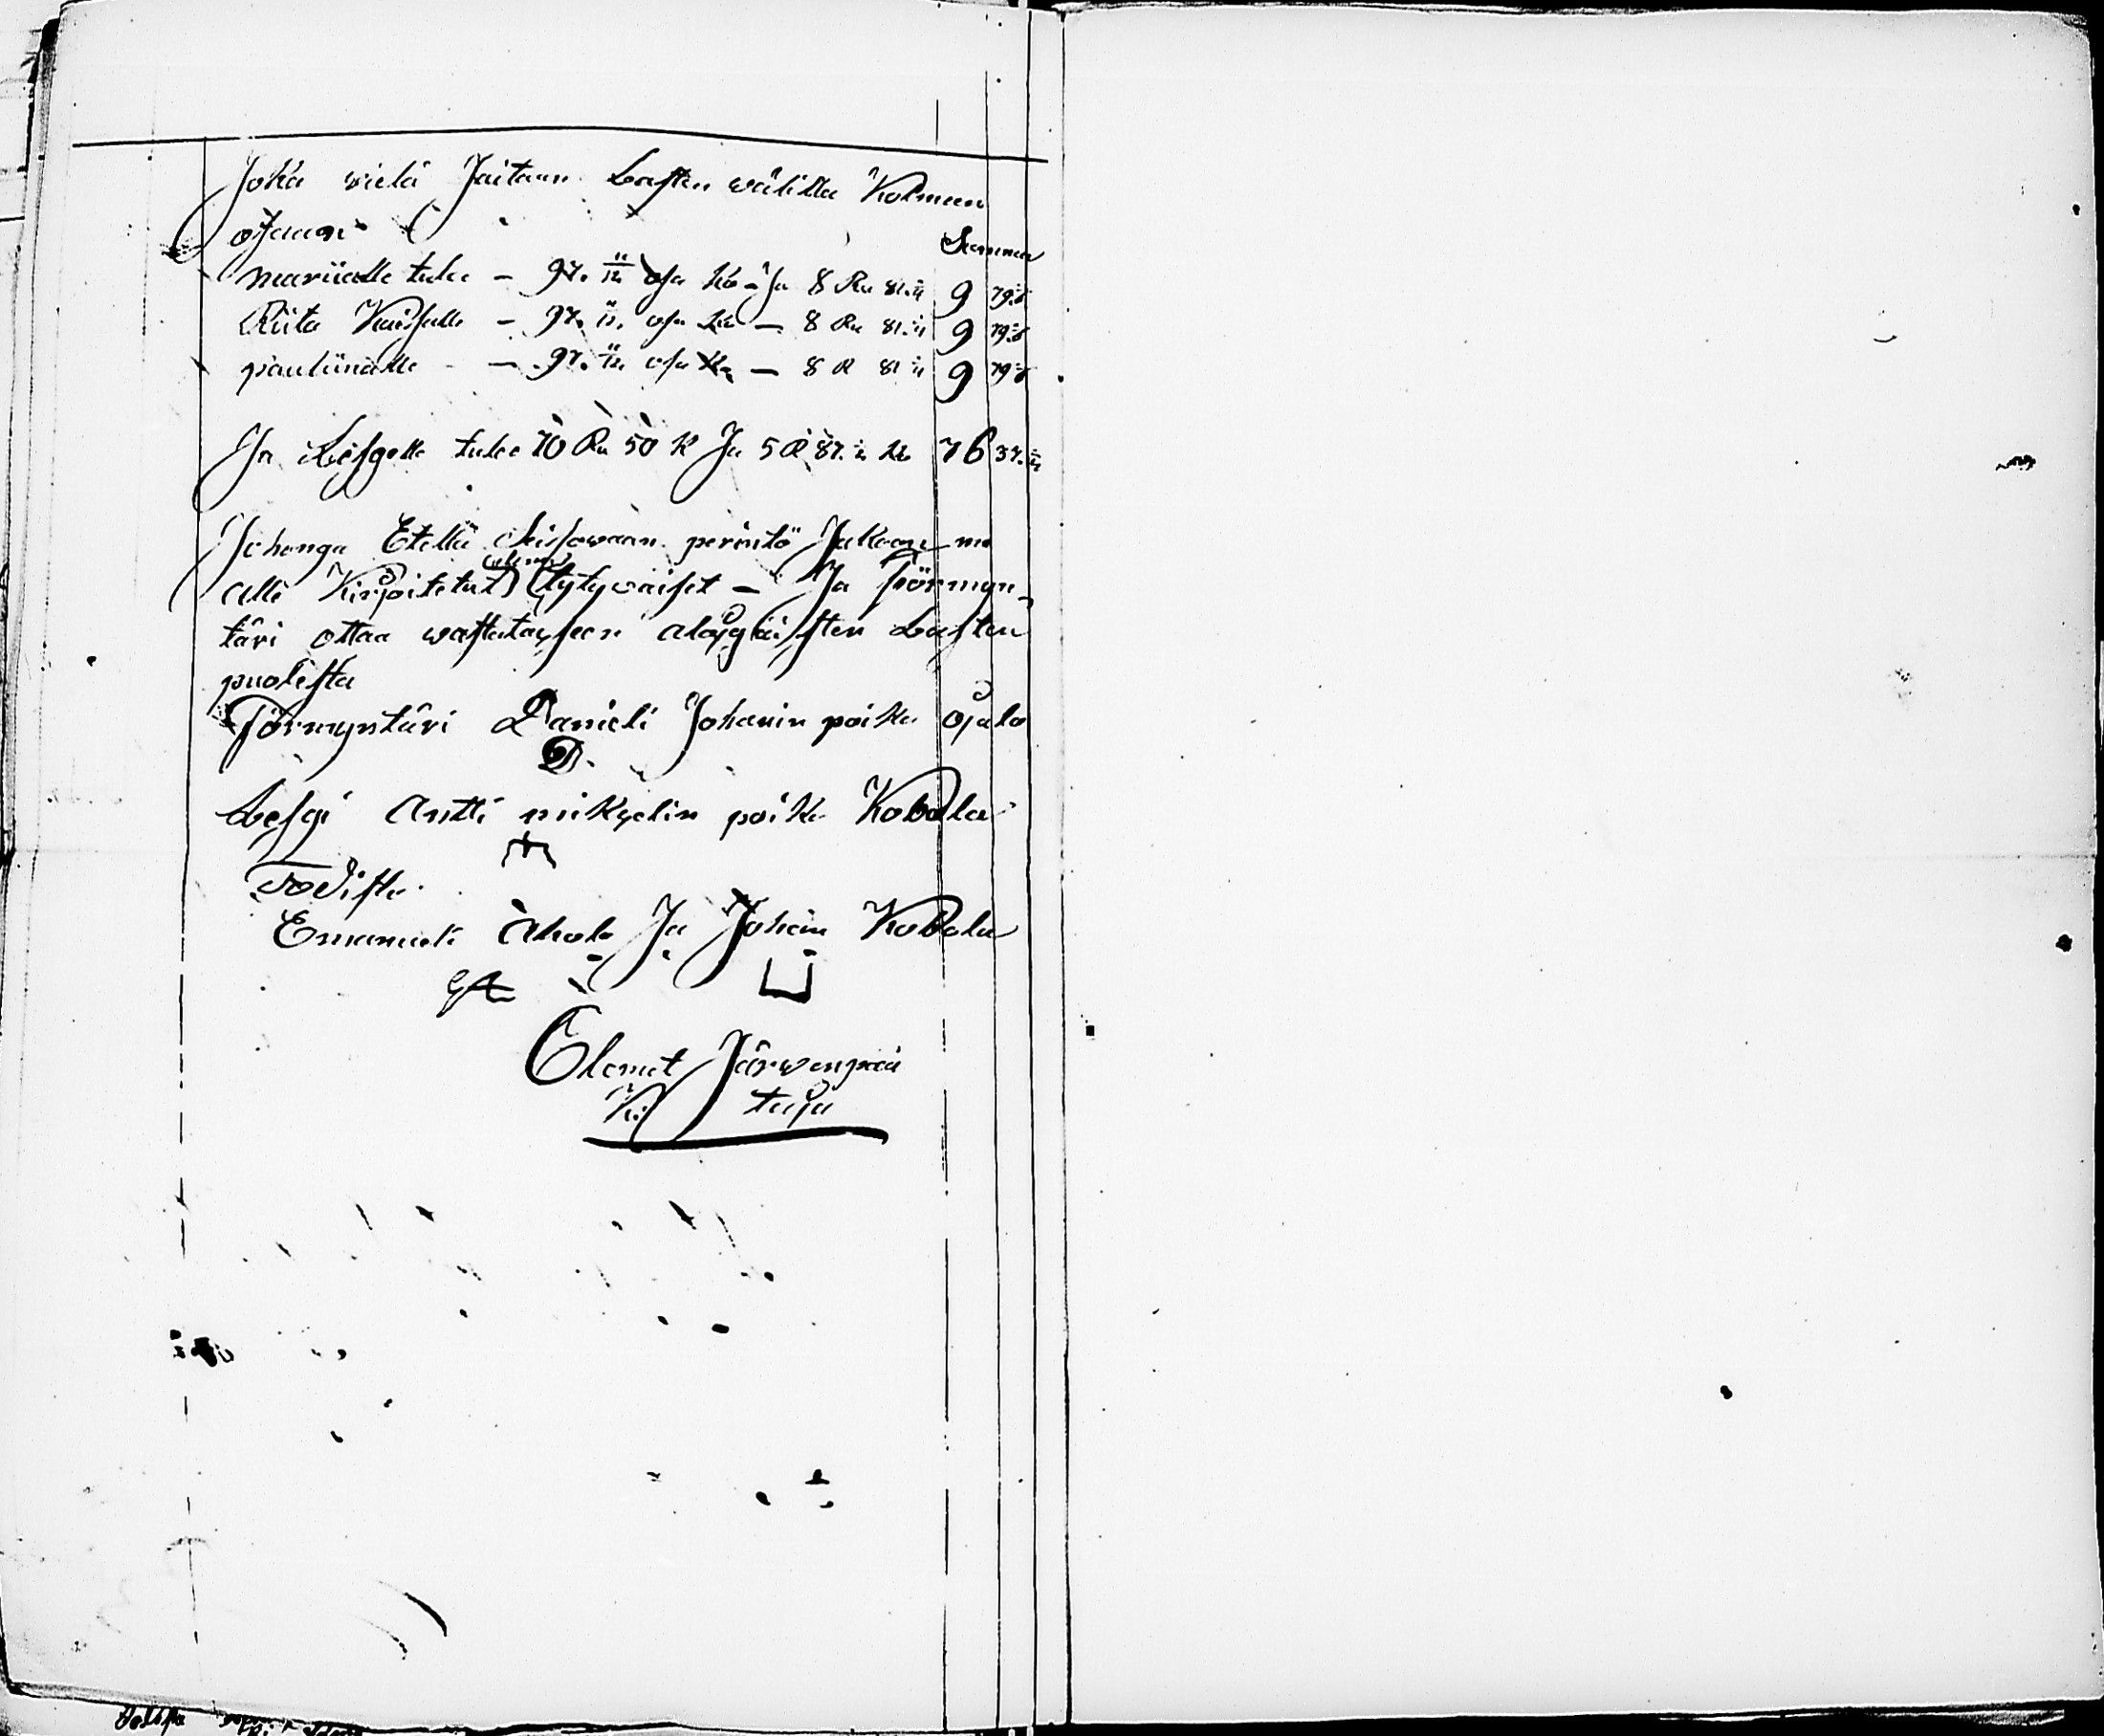 Joka wielä Jaitaan Lasten wälillä Kolmeen
osaan
Summa
mariialle tulee - 97. 11/12 osa ko - Ja 8 Ru 81. 9 79
Riita Kaisalle - 97. 11/12 osa ko - 8 Ru 81. 9 79
pauliinalle - 97. 11/12 osa ko - 8 R 81 9 79
Ja Lesgelle tulee 70 Ru 50 K Ja 5 R 87. ko 76 37.
Johonga Etellä Seisowaan perintö Jakoon me
alle Kirjoitetut olema tytywäiset - Ja Förmyn-
täri ottaa wastataxseen alaigäisten Lasten
puolesta
Förmyntäri Danieli Johanin poika Ojala
D.
Lesgi Antti mikgelin poika Kobola
Todista
Emanueli Ahola Ja Johan Kobola
Elemet Järwenpää
Kir taja